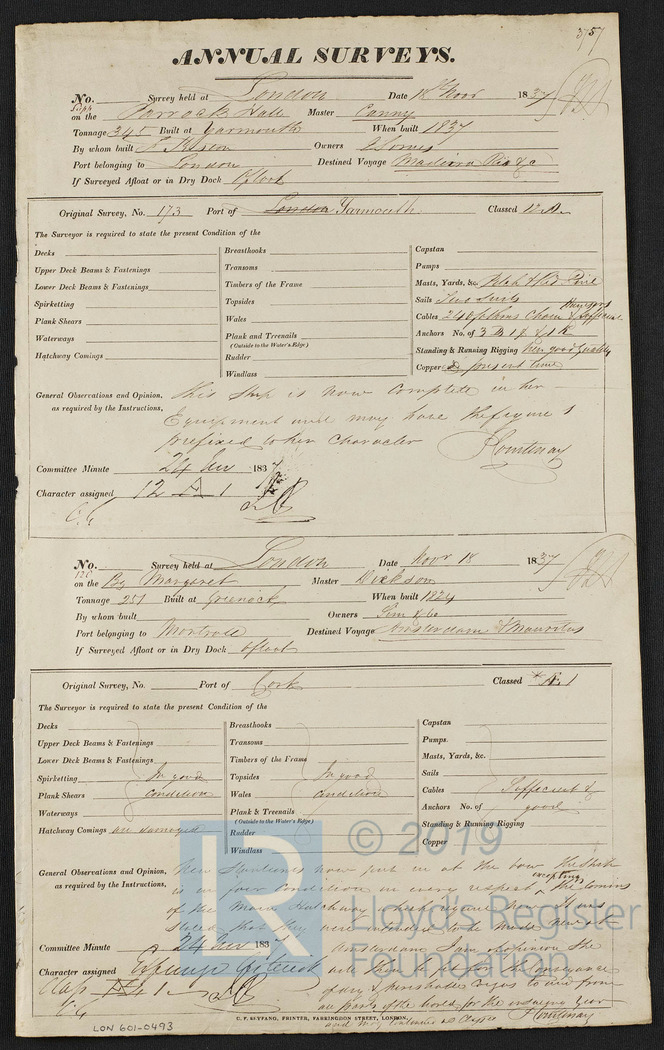 3757
ANNUAL SURVEYS.
No. Survey held at London Date 18 Novr 1837
Ship
on the Parrock Hall Master Canny
Tonnage 345 Built at Yarmouth When built 1837
By whom built Owners
Port belonging to London Destined Voyage Madeira Rio &c
If Surveyed Afloat or in Dry Dock Afloat
Original Survey, No. 173 Port of London Yarmouth. Classed 12 A
The Surveyor is required to state the present Condition of the
Decks
Upper Deck Beams & Fastenings
Lower Deck Beams & Fastenings
Spirketting
Plank Shears
Waterways
Hatchway Comings
Breasthooks
Transoms
Timbers of the Frame
Topsides
Wales
Plank and Treenails
(Outside to the Water's Edge)
Rudder
Windlass
Capstan
Pumps
Masts, Yards, &c. Pitch & Red Pine
Sails Two Suits
Hawsers
Cables 240 fathms Chain & sufficient
Anchors No. of 3 B 1 S & 1 K
Standing & Running Rigging good quality
Copper present time
General Observations and Opinion,
as required by the Instructions,
This Ship is now Complete in her
Equipment and may have the figure 1
prefixed to her Character
Courtenay
Committee Minute 24 Nov 1837
Character assigned 12 A 1
No. Survey held at London Date Novr 18 1837
on the Bg Margaret Master Dickson
Tonnage 251 Built at Greenock When built 1824
By whom built Owners Sim & Co
Port belonging to Montrose Destined Voyage Amsterdam & Mauritius
If Surveyed Afloat or in Dry Dock Afloat
Original Survey, No. Port of Cork Classed *Æ 1
The Surveyor is required to state the present Condition of the
Decks
Upper Deck Beams & Fastenings
Lower Deck Beams & Fastenings
Spirketting In good
Plank Shears condition
Waterways
Hatchway Comings are damaged
Breasthooks
Transoms
Timbers of the Frame
Topsides In good
Wales condition
Plank & Treenails
(Outside to the Water's Edge)
Rudder
Windlass
Capstan
Pumps.
Masts, Yards, &c.
Sails
Cables Sufficient &
Anchors No. of good
Standing & Running Rigging
Copper
General Observations and Opinion,
as required by the Instructions,
New now put in at the bow the Ship
excepting
is in fair Condition in every respect the Coming
of the Main Hatchway which require new it was
stated that they were intended to be made new at
Amsterdam I am of opinion she
will then be fit for the conveyance
of dry & perishable Cargoes to and from
all parts of the world for the ensuing year
and may continue as Classed Courtenay
Committee Minute 24 Nov 1837
Character assigned Expunge Asterisk
Class Æ 1
C. F. SEYFANG, PRINTER, FARRINGDON STREET, LONDON.
LON 601-0493
LR © 2019
Lloyd's Register
Foundation